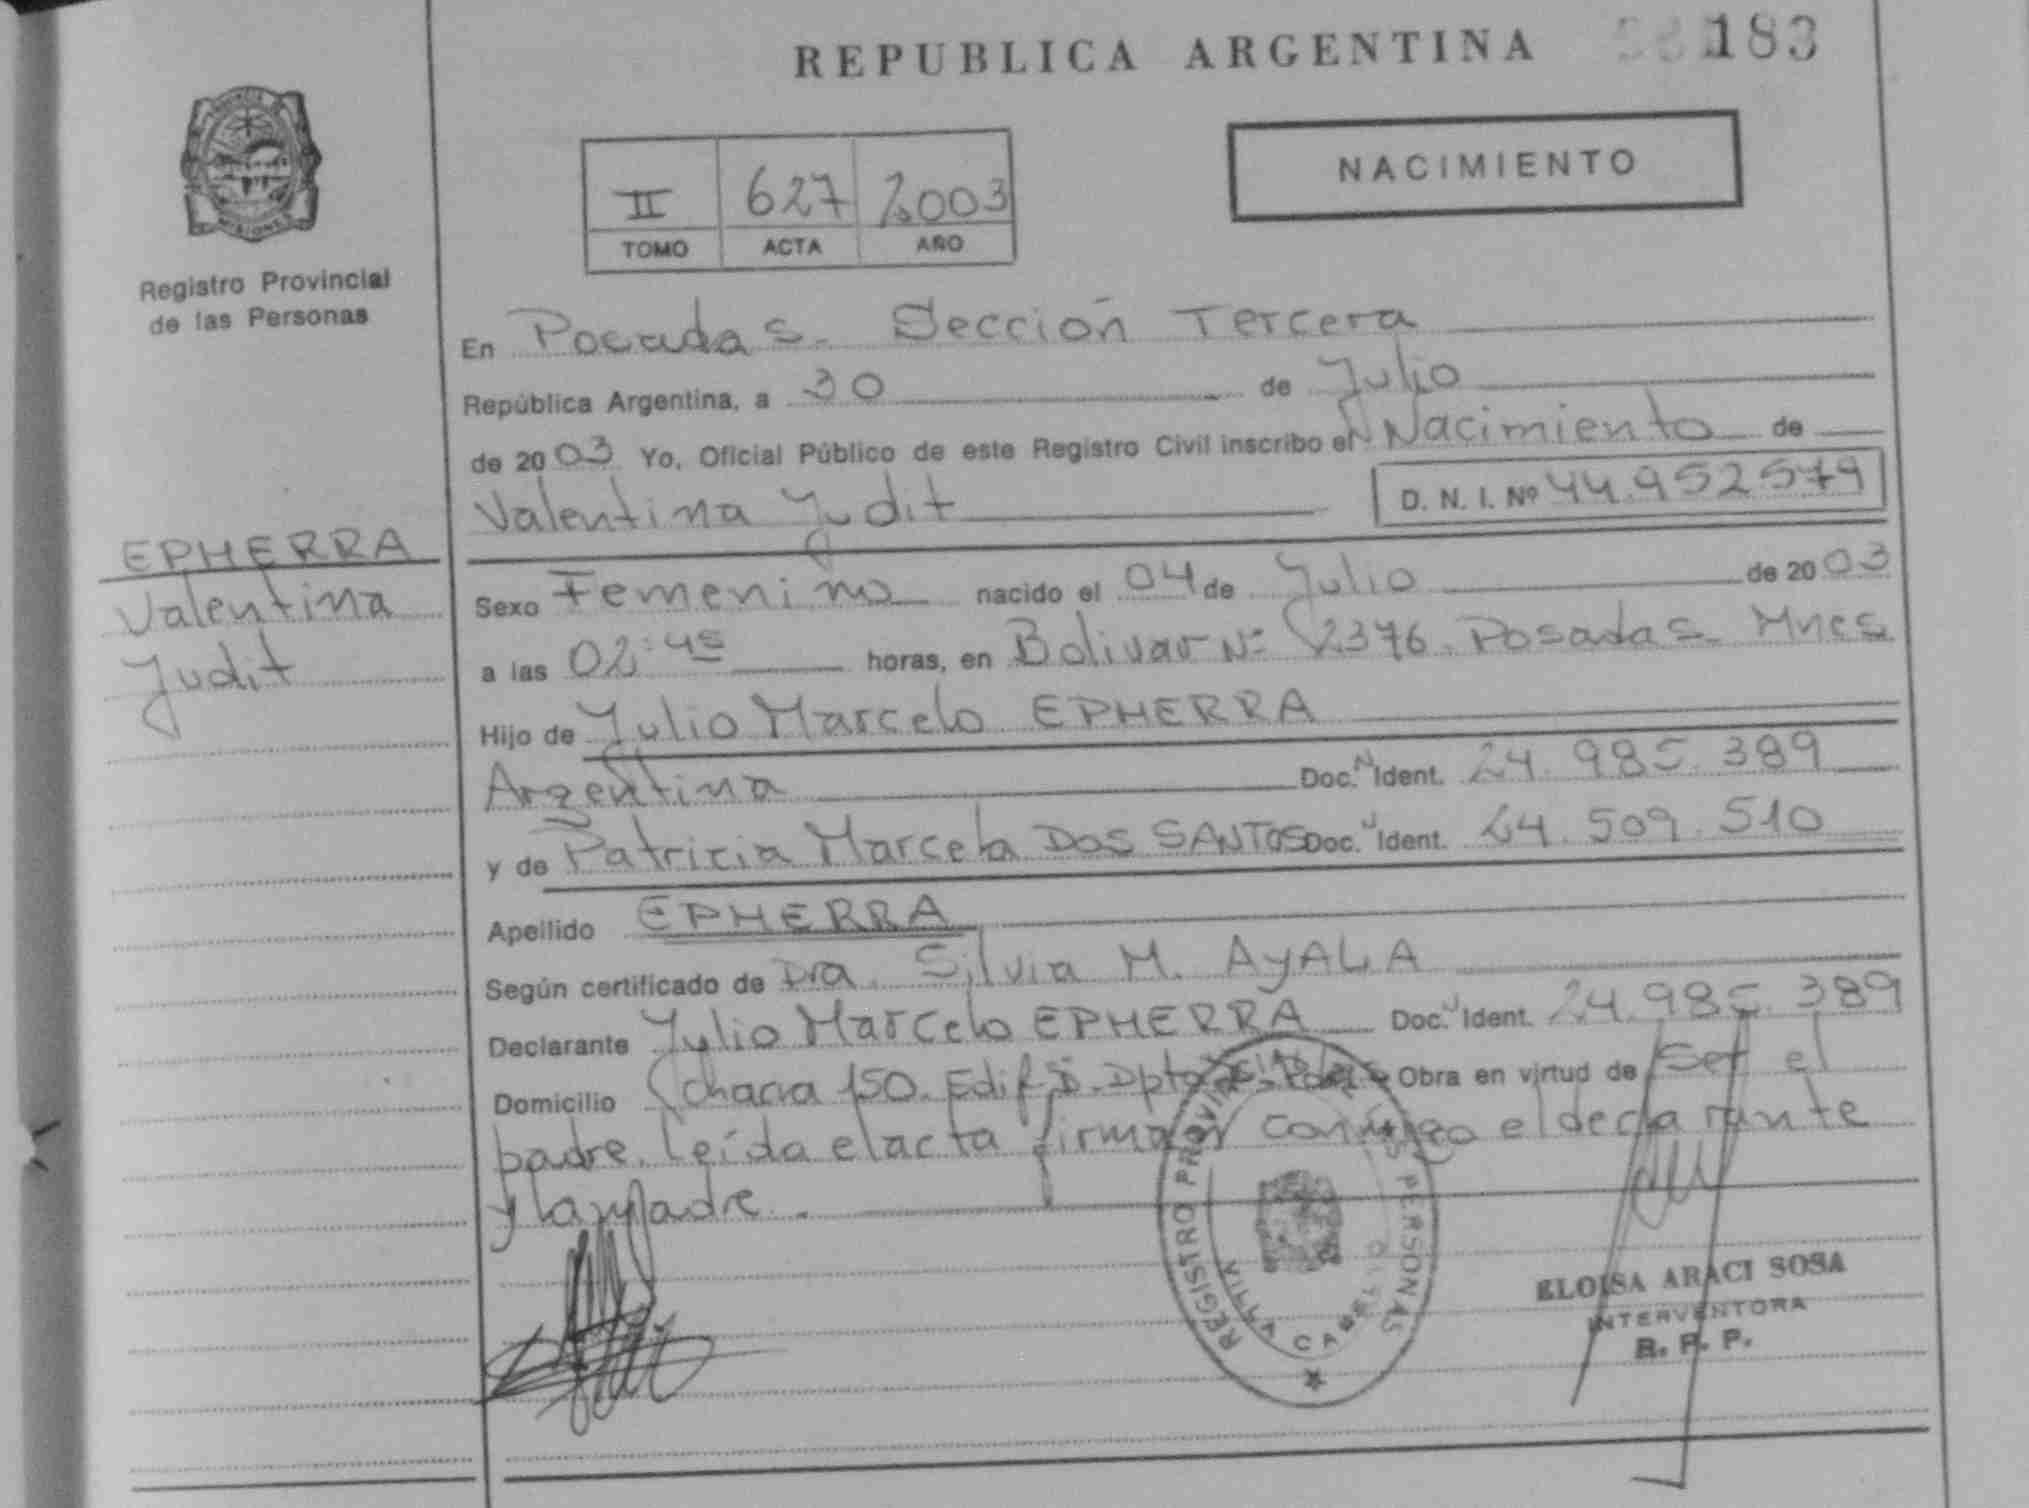 REPUBLICA ARGENTINA 183
NACIMIENTO
II 627 2003
TOMO ACTA AÑO
PROVINCIA DE MISIONES
Registro Provincial
de las Personas
EPHERRA
Valentina
Judit
En Posadas. Sección Tercera
República Argentina, a 30 de Julio
de 2003 Yo, Oficial Público de este Registro Civil inscribo el Nacimiento de
Valentina Judit D. N. I. Nº 44.952579
Sexo Femenino nacido el 04 de Julio de 2003
a las 02:45 horas, en Bolivar Nº 2376. Posadas. Mnes
Hijo de Julio Marcelo EPHERRA
Argentina Doc. Ident. 24.985.389
y de Patricia Marcela DOS SANTOS Doc. Ident. 24.509.510
Apellido EPHERRA
Según certificado de Dra. Silvia M. AYALA
Declarante Julio Marcelo EPHERRA Doc. Ident. 24.985.389
Domicilio Chacra 150. Edif. Dpto Obra en virtud de Ser el
padre. Leída el acta firman conmigo el declarante
y la madre.
REGISTRO PROVINCIAL PERSONAS
ELOISA ARACI SOSA
INTERVENTORA
R. P. P.